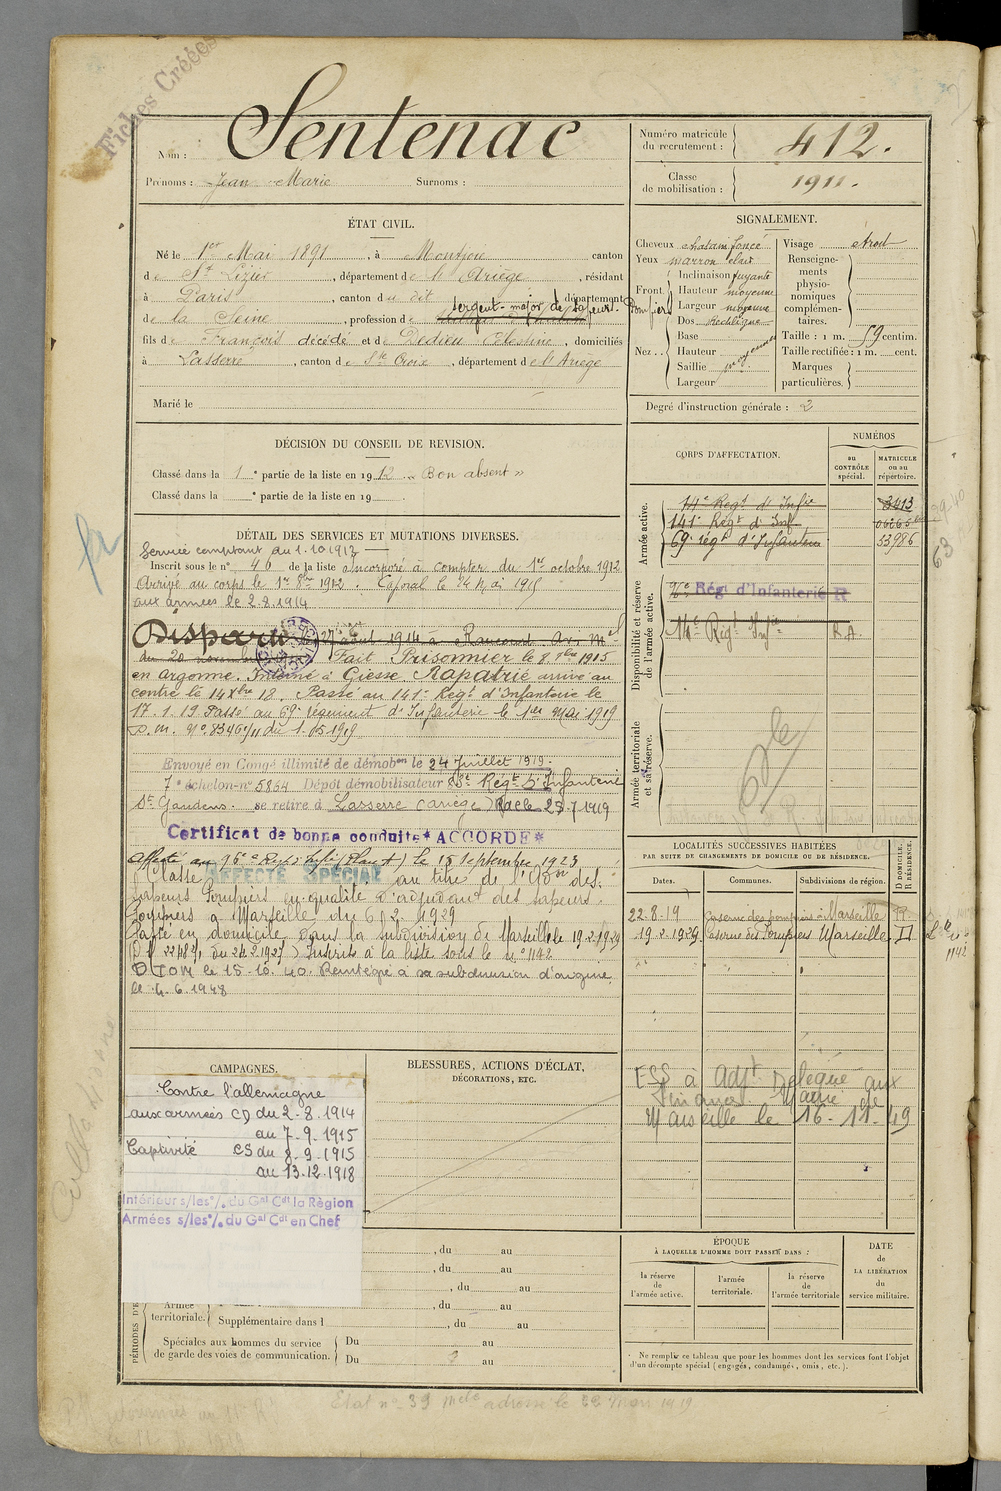 Fiches Créées
Nom : Sentenac
Prénoms : Jean Marie Surnoms :
Numéro matricule du recrutement : 412.
Classe de mobilisation : 1911.
ÉTAT CIVIL.
Né le 1er Mai 1891, à Montjoie canton
de St Lizier, département de l'Ariège, résidant
à Paris, canton du dit, département
sergent-major de sapeurs-
Pompiers
de la Seine, profession de
fils de François décédé et de Dedieu Célestine, domiciliés
à Lasserre, canton de Ste Croix, département de l'Ariège
Marié le
SIGNALEMENT.
Cheveux chatain foncé
Yeux marron clair
Front Inclinaison fuyante
Hauteur moyenne
Largeur moyenne
Nez Dos Rectiligne
Base
Hauteur moyenne
Saillie
Largeur
Visage étroit
Renseignements physionomiques complémentaires.
Taille : 1 m. 59 centim.
Taille rectifiée : 1 m. cent.
Marques particulières.
Degré d'instruction générale : 2
DÉCISION DU CONSEIL DE REVISION.
Classé dans la 1e partie de la liste en 1912 « Bon absent »
Classé dans la e partie de la liste en 19
DÉTAIL DES SERVICES ET MUTATIONS DIVERSES.
Service comptant du 1.10.1912
Inscrit sous le n° 46 de la liste Incorporé à compter du 1er octobre 1912
Arrivé au corps le 1er 8bre 1912. Caporal le 24 Mai 1915
aux armées le 2.8.1914
Disparu le 27 Août 1914 à Raucourt. Av. Mel
du 20 novembre Fait Prisonnier le 8 7bre 1915
en argonne. Interné à Giesse Rapatrié arrivé au
centre le 14 Xbre 18. Passé au 141e Regt d'Infanterie le
17.1.19 Passé au 69e régiment d'Infanterie le 1er Mai 1919
D.M. N° 8346 1/11 du 1.05.1919
Envoyé en Congé illimité de démobon le 24 Juillet 1919.
7e échelon-n° 5864 Dépôt démobilisateur Régt d'Infanterie
St Gaudens. se retire à Lasserre (Ariège) 1919
Certificat de bonne conduite * ACCORDÉ *
Affecté au 96e Regt Infie (Plan A) le 15 Septembre 1923
Classé AFFECTÉ SPÉCIAL au titre de des
sapeurs Pompiers en qualité d'adjudant des sapeurs-
pompiers à Marseille du 6.2.1929
Passé en domicile dans la subdivision de Marseille le 19.2.1929
Inscrit à la liste sous le n° 1142
le 15.10.40. Réintégré à sa subdivision d'origine
le 4.6.1948
CORPS D'AFFECTATION.
NUMÉROS
au CONTRÔLE spécial.
MATRICULE ou au répertoire.
Armée active.
14e Regt d'Infie 3413
141e Regt d'Inf
69e régt d'Infanterie 53986
Disponibilité et réserve de l'armée active.
96e Rég. d'Infanterie R
14e Régt Infie
Armée territoriale et sa réserve.
LOCALITÉS SUCCESSIVES HABITÉES
PAR SUITE DE CHANGEMENTS DE DOMICILE OU DE RÉSIDENCE.
Dates. Communes. Subdivisions de région. D DOMICILE. R RÉSIDENCE.
22.8.19 Caserne des pompiers à Marseille R
19.2.1929 Caserne des Pompiers Marseille D
1142
ESS à Adjt Délégué aux
Finances Mairie de
Marseille le 16-11-49
CAMPAGNES.
Contre l'allemagne
aux armées CD du 2-8.1914
au 7-9.1915
Captivité CS du 8.9.1915
au 13.12.1918
Intérieur s/les o/. du Gal Cdt la Région
Armées s/les o/. du Gal Cdt en Chef
BLESSURES, ACTIONS D'ÉCLAT,
DÉCORATIONS, ETC.
, du au
, du au
, du au
, du au
Armée territoriale. Supplémentaire dans l , du au
Spéciales aux hommes du service de garde des voies de communication. Du au
Du au
ÉPOQUE
À LAQUELLE L'HOMME DOIT PASSER DANS :
la réserve de l'armée active.
l'armée territoriale.
la réserve de l'armée territoriale
DATE DE LA LIBÉRATION du service militaire.
Ne remplir ce tableau que pour les hommes dont les services font l'objet
d'un décompte spécial (engagés, condamnés, omis, etc.).
Etat n° 39 adressé le 22 Mars 1919